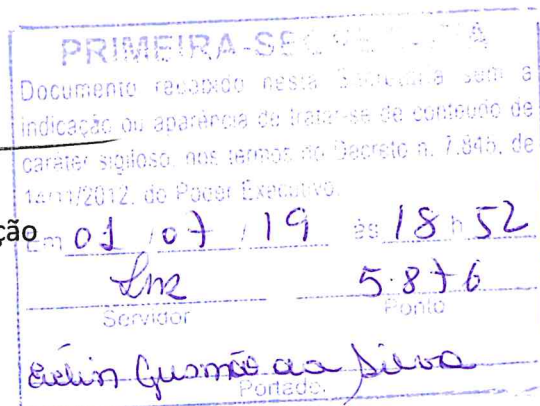 PRIMEIRA-SECRETARIA
Documento recebido nesta Secretaria sem a
indicação ou aparência de tratar-se de conteúdo de
caráter sigiloso, nos termos do Decreto n. 7.845, de
14/11/2012, do Poder Executivo.
ção
Em 01 / 07 / 19 às 18 h 52
5.876
Servidor Ponto
Gusmão da Silva
Portador